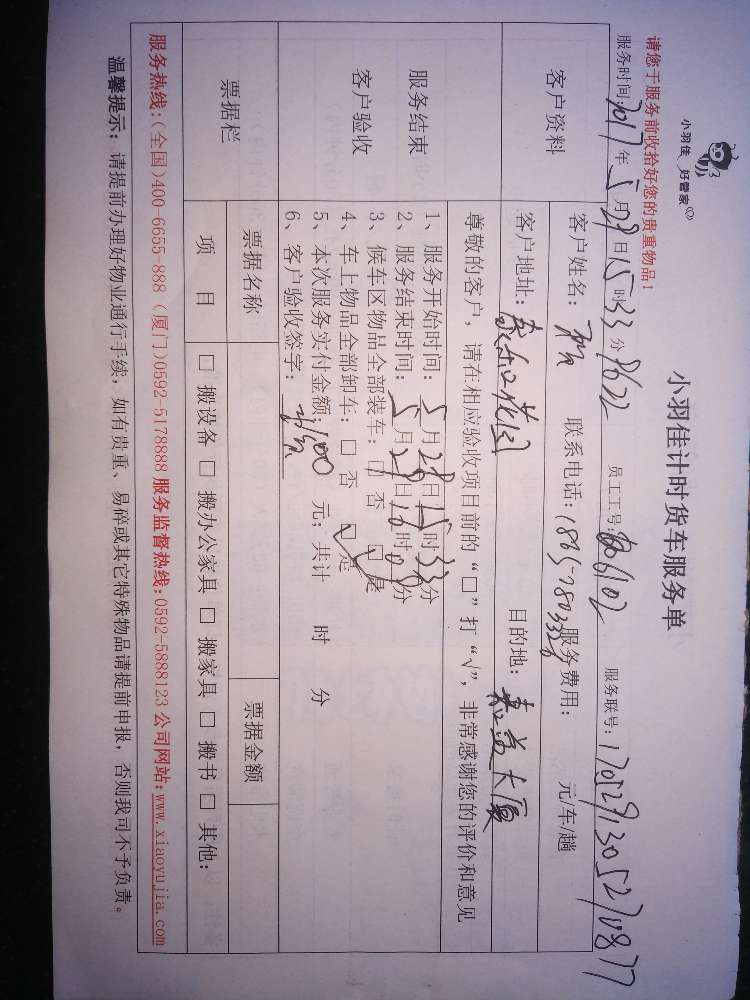 小羽佳 好管家
小羽佳计时货车服务单
请您于服务前收拾好您的贵重物品!
服务时间:2017年5月29日15时33分 员工工号: 服务联号:1705291305270877
客户资料
客户姓名: 联系电话: 服务费用: 元/车/趟
客户地址: 目的地:嘉益大厦
尊敬的客户,请在相应验收项目前的“□”打“√”,非常感谢您的评价和意见
服务结束
客户验收
1、服务开始时间:5月29日15时33分
2、服务结束时间:5月29日16时0分
3、候车区物品全部装车:□ 否 □ 是
4、车上物品全部卸车:□ 否 □ 是
5、本次服务实付金额: 元;共计 时 分
6、客户验收签字:
票据栏
票据名称 票据金额
项 目 □ 搬设备 □ 搬办公家具 □ 搬家具 □ 搬书 □ 其他:
服务热线:(全国)400-6655-888 (厦门)0592-5178888 服务监督热线:0592-5888123 公司网站:www.xiaoyujia.com
温馨提示:请提前办理好物业通行手续,如有贵重、易碎或其它特殊物品请提前申报,否则我司不予负责。